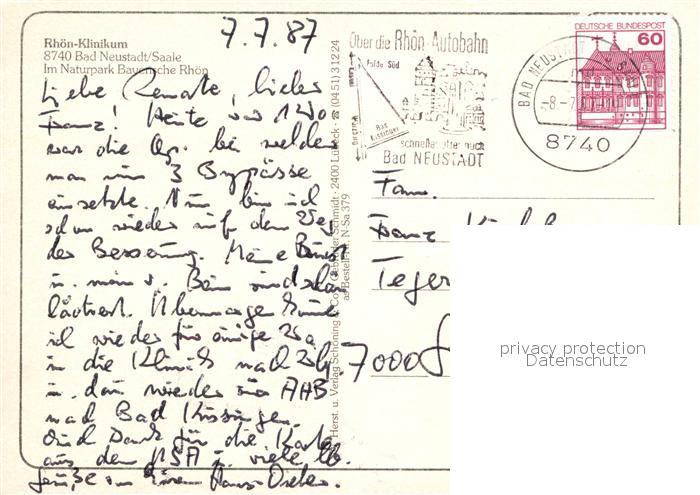 7.7.87
Rhön-Klinikum
8740 Bad Neustadt/Saale
Im Naturpark Bayerische Rhön
Liebe Renate, lieber
Franz! Heute vor
war die Op. bei welcher
man mir 3 Bypässe
einsetzte. Nun bin ich
schon wieder auf dem Weg
der Besserung. Meine Brust
u. mein Bein sind
lädiert. Übermorgen
ich wieder für einige
in die Klinik nach
u. dann wieder zur AHB
nach Bad Kissingen.
Und Dank für die Karte
aus den USA u. viele lb.
Grüße von Eurem Hans-Dieter.
Herst. u. Verlag Schöning & Co + Gebrüder Schmidt · 2400 Lübeck · ☎ (0451) 31224
Bestell-Nr. N-Sa 379
Über die Rhön-Autobahn
Fulda Süd
Bad Kissingen
schneller öfter nach
Bad NEUSTADT
BAD NEUSTADT
8740
DEUTSCHE BUNDESPOST
60
Fam.
Franz
Teger
7000 S
privacy protection
Datenschutz